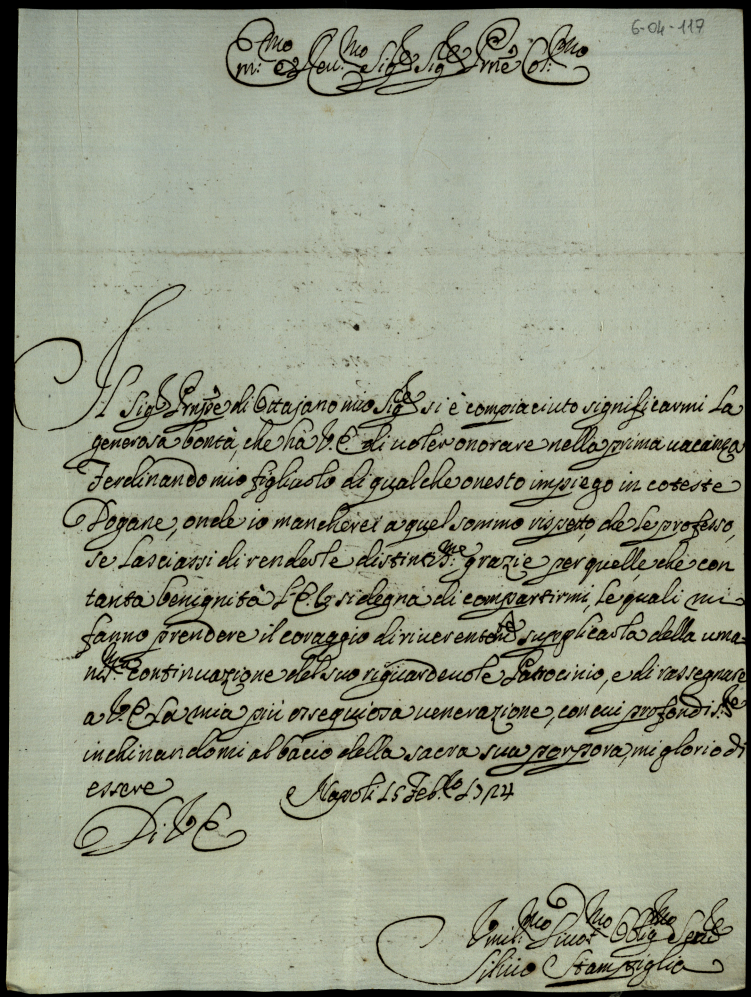 6-04-117
Em.mo e Reu.mo Sig.re Sig.re Prne Col.mo
Il Sig.r Prnpe di Ottajano mio Sig.re si è compiaciuto significarmi la
generosa bontà, che hà V.E. di uoler onorare nella prima uacanza
Ferdinando mio figliuolo di qualche onesto impiego in coteste
Dogane, onde io mancherei a quel sommo rispetto, che le professo,
se lasciassi di renderle distintis.me grazie per quelle, che con
tanta benignità l'E. si degna di compartirmi, le quali mi
fanno prendere il coraggio di riuerentem.te supplicarla della uma-
nis.ma continuazione del suo riguardeuole Patrocinio, e di rassegnare
a V.E. la mia più ossequiosa uenerazione, con cui profondis.te
inchinandomi al bacio della sacra sua porpora, mi glorio di
essere Napoli 15 Feb.ro 1724
Di V.E.
Vmil.mo Diuot.mo Oblig.mo Seru.re
Siluio Stampiglia